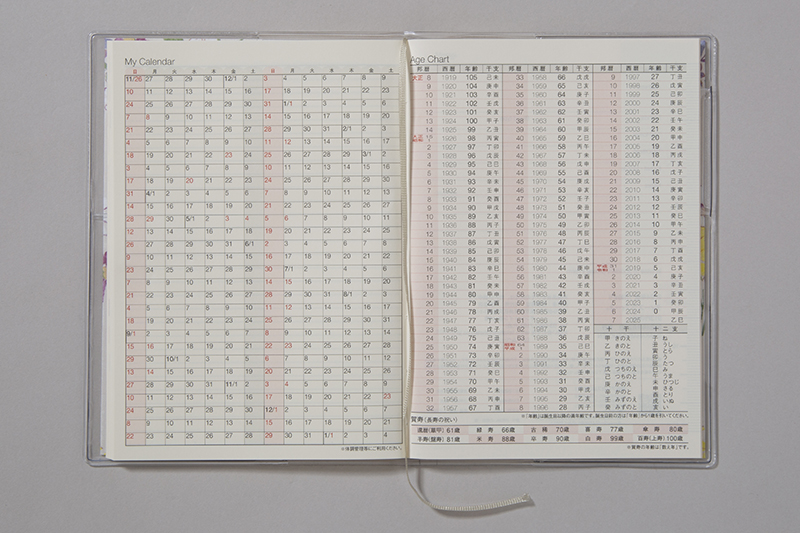 My Calendar
日 月 火 水 木 金 土 日 月 火 水 木 金 土
11/26 27 28 29 30 12/1 2 3 4 5 6 7 8 9
10 11 12 13 14 15 16 17 18 19 20 21 22 23
24 25 26 27 28 29 30 31 1/1 2 3 4 5 6
7 8 9 10 11 12 13 14 15 16 17 18 19 20
21 22 23 24 25 26 27 28 29 30 31 2/1 2 3
4 5 6 7 8 9 10 11 12 13 14 15 16 17
18 19 20 21 22 23 24 25 26 27 28 29 3/1 2
3 4 5 6 7 8 9 10 11 12 13 14 15 16
17 18 19 20 21 22 23 24 25 26 27 28 29 30
31 4/1 2 3 4 5 6 7 8 9 10 11 12 13
14 15 16 17 18 19 20 21 22 23 24 25 26 27
28 29 30 5/1 2 3 4 5 6 7 8 9 10 11
12 13 14 15 16 17 18 19 20 21 22 23 24 25
26 27 28 29 30 31 6/1 2 3 4 5 6 7 8
9 10 11 12 13 14 15 16 17 18 19 20 21 22
23 24 25 26 27 28 29 30 7/1 2 3 4 5 6
7 8 9 10 11 12 13 14 15 16 17 18 19 20
21 22 23 24 25 26 27 28 29 30 31 8/1 2 3
4 5 6 7 8 9 10 11 12 13 14 15 16 17
18 19 20 21 22 23 24 25 26 27 28 29 30 31
9/1 2 3 4 5 6 7 8 9 10 11 12 13 14
15 16 17 18 19 20 21 22 23 24 25 26 27 28
29 30 10/1 2 3 4 5 6 7 8 9 10 11 12
13 14 15 16 17 18 19 20 21 22 23 24 25 26
27 28 29 30 31 11/1 2 3 4 5 6 7 8 9
10 11 12 13 14 15 16 17 18 19 20 21 22 23
24 25 26 27 28 29 30 12/1 2 3 4 5 6 7
8 9 10 11 12 13 14 15 16 17 18 19 20 21
22 23 24 25 26 27 28 29 30 31 1/1 2 3 4
※体調管理等にご利用ください。
Age Chart
邦暦 西暦 年齢 干支 邦暦 西暦 年齢 干支 邦暦 西暦 年齢 干支
大正 8 1919 105 己未 33 1958 66 戊戌 9 1997 27 丁丑
9 1920 104 庚申 34 1959 65 己亥 10 1998 26 戊寅
10 1921 103 辛酉 35 1960 64 庚子 11 1999 25 己卯
11 1922 102 壬戌 36 1961 63 辛丑 12 2000 24 庚辰
12 1923 101 癸亥 37 1962 62 壬寅 13 2001 23 辛巳
13 1924 100 甲子 38 1963 61 癸卯 14 2002 22 壬午
14 1925 99 乙丑 39 1964 60 甲辰 15 2003 21 癸未
1926 98 丙寅 40 1965 59 乙巳 16 2004 20 甲申
2 1927 97 丁卯 41 1966 58 丙午 17 2005 19 乙酉
3 1928 96 戊辰 42 1967 57 丁未 18 2006 18 丙戌
4 1929 95 己巳 43 1968 56 戊申 19 2007 17 丁亥
5 1930 94 庚午 44 1969 55 己酉 20 2008 16 戊子
6 1931 93 辛未 45 1970 54 庚戌 21 2009 15 己丑
7 1932 92 壬申 46 1971 53 辛亥 22 2010 14 庚寅
8 1933 91 癸酉 47 1972 52 壬子 23 2011 13 辛卯
9 1934 90 甲戌 48 1973 51 癸丑 24 2012 12 壬辰
10 1935 89 乙亥 49 1974 50 甲寅 25 2013 11 癸巳
11 1936 88 丙子 50 1975 49 乙卯 26 2014 10 甲午
12 1937 87 丁丑 51 1976 48 丙辰 27 2015 9 乙未
13 1938 86 戊寅 52 1977 47 丁巳 28 2016 8 丙申
14 1939 85 己卯 53 1978 46 戊午 29 2017 7 丁酉
15 1940 84 庚辰 54 1979 45 己未 30 2018 6 戊戌
16 1941 83 辛巳 55 1980 44 庚申 2019 5 己亥
17 1942 82 壬午 56 1981 43 辛酉 2 2020 4 庚子
18 1943 81 癸未 57 1982 42 壬戌 3 2021 3 辛丑
19 1944 80 甲申 58 1983 41 癸亥 4 2022 2 壬寅
20 1945 79 乙酉 59 1984 40 甲子 5 2023 1 癸卯
21 1946 78 丙戌 60 1985 39 乙丑 6 2024 0 甲辰
22 1947 77 丁亥 61 1986 38 丙寅 7 2025 乙巳
23 1948 76 戊子 62 1987 37 丁卯 十干 十二支
24 1949 75 己丑 63 1988 36 戊辰 甲 きのえ 子 ね
25 1950 74 庚寅 1989 35 己巳 乙 きのと 丑 うし
26 1951 73 辛卯 2 1990 34 庚午 丙 ひのえ 寅 とら
27 1952 72 壬辰 3 1991 33 辛未 丁 ひのと 卯 う
28 1953 71 癸巳 4 1992 32 壬申 戊 つちのえ 辰 たつ
29 1954 70 甲午 5 1993 31 癸酉 己 つちのと 巳 み
30 1955 69 乙未 6 1994 30 甲戌 庚 かのえ 午 うま
31 1956 68 丙申 7 1995 29 乙亥 辛 かのと 未 ひつじ
32 1957 67 丁酉 8 1996 28 丙子 壬 みずのえ 申 さる
癸 みずのと 酉 とり
戌 いぬ
亥 い
賀寿(長寿の祝い)
還暦(華甲)61歳 緑寿 66歳 古稀 70歳 喜寿 77歳 傘寿 80歳
半寿(盤寿)81歳 米寿 88歳 卒寿 90歳 白寿 99歳 百寿(上寿)100歳
※賀寿の年齢は「数え年」です。